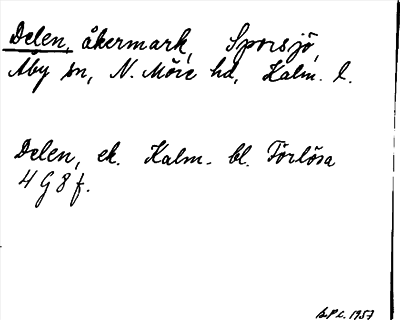 Delen, åkermark, Sporsjö,
Åby sn, N. Möre hd, Kalm. l.
Delen, ek. Kalm. bl. Förlösa
4 G 8 f.
1957